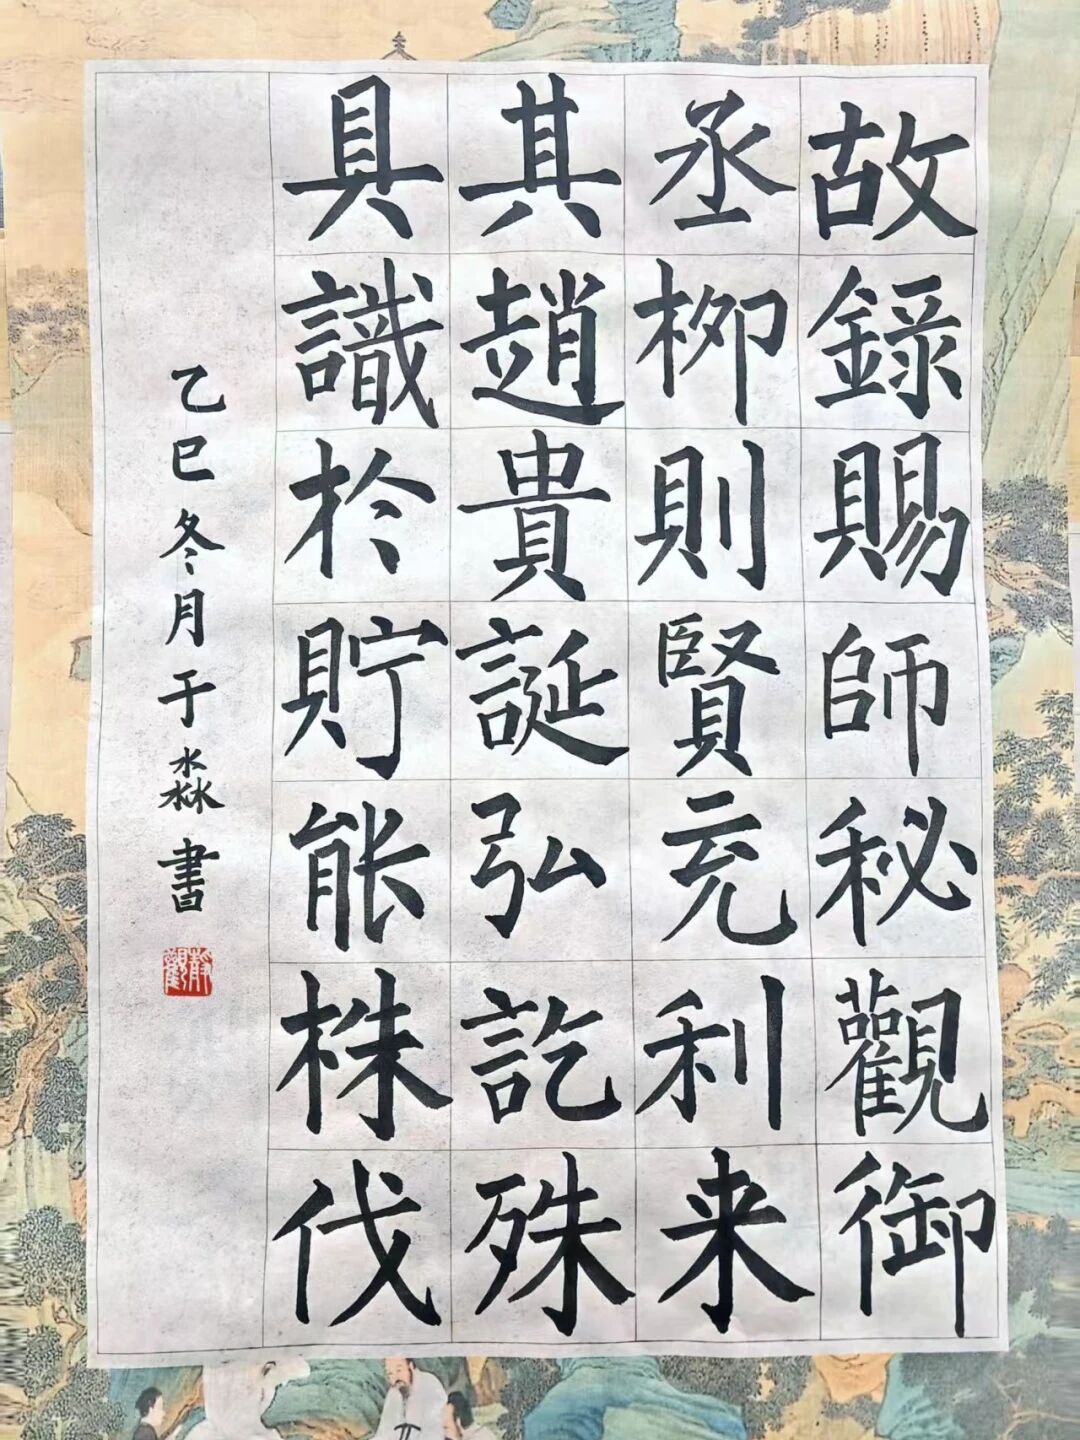 故錄賜師秘觀御
丞柳則賢充利来
其趙貴誕弘訖殊
具識於貯能株伐
乙巳冬月于淼書
靜觀